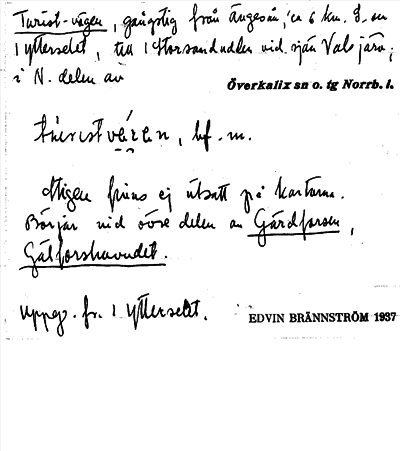 Turist-vägen, gångstig från Ängesån, ca 6 km. S. om
1 Ytterselet, till 1 Storsandudden vid sjön Valsjärv,
i N. delen av
Överkalix sn o. tg Norrb. l.
bf. m.
Stigen finns ej utsatt på kartorna.
Börjar vid övre delen av Gårdforsen,
Gålforshuvudet.
Uppg. fr. 1 Ytterselet.
EDVIN BRÄNNSTRÖM 1937